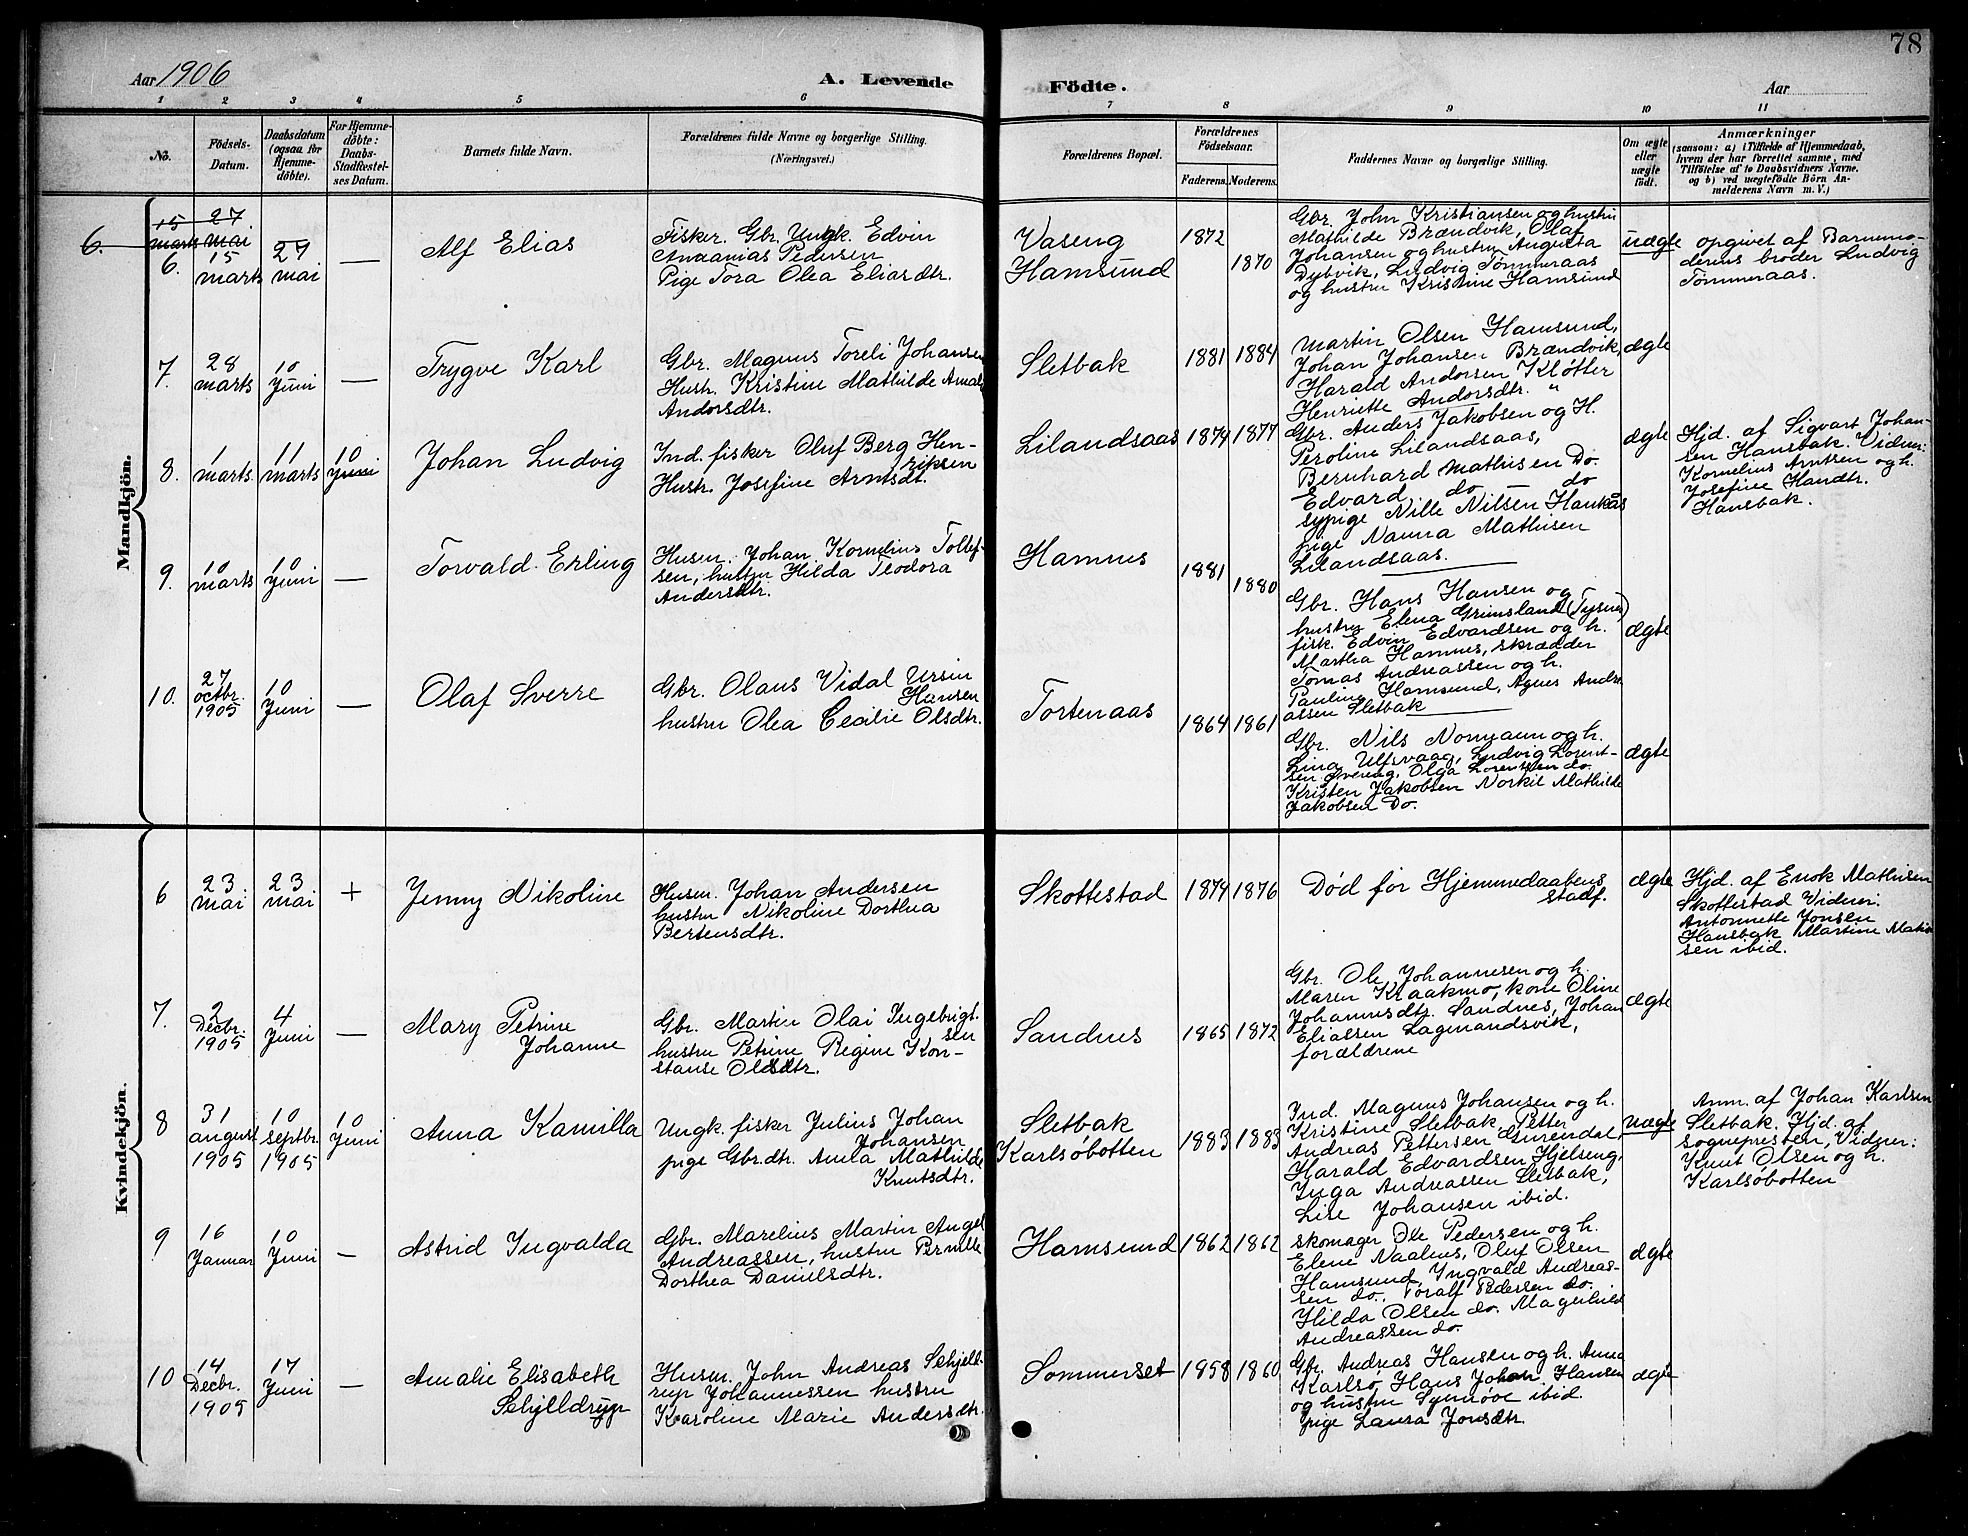 78
Aar 1906
A. Levende
Födte.
Aar
1 2 3 4 5 6 7 8 9 10 11
No.
Födsels-
Datum.
Daabsdatum
(ogsaa for
Hjemme-
döbte).
For Hjemme-
döbte:
Daabs-
Stadfæstel-
ses Datum.
Barnets fulde Navn.
Forældrenes fulde Navne og borgerlige Stilling.
(Næringsvei.)
Forældrenes Bopæl.
Forældrenes
Födselsaar.
Faderens. Moderens.
Faddernes Navne og borgerlige Stilling.
Om ægte
eller
uægte
födt.
Anmærkninger
(saasom: a) i Tilfælde af Hjemmedaab,
hvem der har forrettet samme, med
Tilföielse af to Daabsvidners Navne.
og b) ved uægtefödte Börn An-
melderens Navn m. V.)
Mandkjön.
6.
15 27
marts mai
6.
15
marts
27
mai
—
Alf Elias
Fisker. Gbr. Ungk. Edvin
Annanias Pedersen
Pige Tora Olea Eliasdtr.
Vaseng
Hamsund
1872
1870
Gbr. John Kristiansen og hustru
Mathilde Brændvik, Olaf
Johansen og hustru Augusta
Dybvik, Ludvig Tömmeraas
og hustru Kristine Hamsund
uægte
opgivet af Barnemo-
derens broder Ludvig
Tömmeraas.
7.
28
marts
10
Juni
—
Trygve Karl
Gbr. Magnus Toreli Johansen
Hustr. Kristine Mathilde
Andorsdtr.
Sletbak
1881
1884
Martin Olsen Hamsund,
Johan Johansen Brændvik,
Harald Andorsen Kløtter
Henriette Andorsdtr. "
ægte
8.
1
marts.
11
marts
10
Juni
Johan Ludvig
Ind. fisker Oluf Berg Hen-
riksen
Hustr. Josefine Arntsdt.
Lilandsaas
1874
1877
Gbr. Anders Jakobsen og H.
Peroline Lilandsaas,
Bernhard Mathisen Do.
Edvard do — do
sypige Nille Nilsen Haukås
pige Nanna Mathisen
Lilandsaas.
ægte
Hjd. af Sigvart Johan-
sen Hansbak. Vidner:
Kornelius Arntsen og h.
Josefine Handtr.
Hansbak.
9.
10
marts
10
Juni
—
Torvald Erling
Husm. Johan Kornelius Tollef-
sen, hustru Hilda Teodora
Andersdtr.
Hamnes
1881
1880
Gbr. Hans Hansen og
hustru Elena Grimsland (Tysnes)
fisk. Edvin Edvardsen og h.
Martha Hamnes, skrædder
Tomas Andreassen og h.
Pauline Hamsund, Agnes Andre
assen Sletbak
ægte
10.
27
octbr.
1905
10
Juni
—
Olaf Sverre
Gbr. Olaus Vidal Ursin
Hansen
hustru Olea Cecilie Olsdtr.
Tortenaas
1864
1861
Gbr. Nils Normann og h.
Lina Ulfsvaag, Ludvig Lorent-
sen Qvereng, Olga Lorentsen do.
Kristen Jakobsen Norkil Mathilde
Jakobsen Do.
ægte
Kvindekjön.
6
23
mai
23
mai
+
Jenny Nikoline
Husm. Johan Andersen
hustru Nikoline Dorthea
Bertensdtr.
Skottestad
1874
1876
Död før Hjemmedaabens
stadf.
ægte
Hjd. af Enok Mathisen
Skottestad Vidner:
Antonnette Jonsen
Hansbak Martine Mathi
sen ibid.
7.
2
Decbr.
1905
4
Juni
—
Mary Petrine
Johanne
Gbr. Martin Olai Ingebrigt-
sen
hustru Petrine Regine Kon-
stanse Olsdtr.
Sandnes
1865
1872
Gbr. Ole Johannesen og h.
Maren Kraakmo, kone Oline
Johannsdtr. Sandnes, Johan
Eliassen Lagmandsvik,
forældrene
ægte
8
31
august
1905
10
septbr.
1905
10
Juni
Anna Kamilla
Ungk. fisker Julius Johan
Johansen
pige Gbr.dtr. Anna Mathilde
Knutsdtr.
Sletbak
Karlsøbotten
1883
1883
Ind. Magnus Johansen og h.
Kristine Sletbak, Petter
Andreas Pettersen Gurendal,
Harald Edvardsen Hjelseng,
Inga Andreassen Sletbak,
Lise Johansen ibid.
uægte
Anm. af Johan Karlsen
Sletbak. Hjd. af
sognepresten, Vidner:
Knut Olsen og h.
Karlsøbotten
9
16
Januar
10
Juni
—
Astrid Ingvalda
Gbr. Marelius Martin Angel
Andreassen, hustru Pernille
Dorthea Danielsdtr.
Hamsund
1862
1862
skomager Ole Pedersen og h.
Elene Naalnes, Oluf Olsen
Hamsund, Yngvald Andreas-
sen do. Toralf Pedersen do.
Hilda Olsen do. Magnhild
Andreassen do.
ægte
10
14
Decbr.
1905
17
Juni
—
Amalie Elisabeth
Schjelldrup
Husm. John Andreas Schjell-
rup Johannessen hustru
Karoline Marie Andersdtr.
Sommerset
1858
1860
Gbr. Andreas Hansen og h. Anna
Karlsø Hans Johan Hansen
og hustru Synnøve ibid.
pige Laura Jonsdtr.
ægte